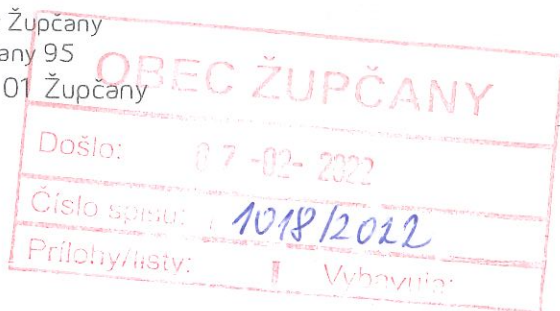 Župčany
any 95
01 Župčany
OBEC ŽUPČANY
Došlo: 07 -02- 2022
Číslo spisu: 1018/2022
Prílohy/listy: Vybavuje: